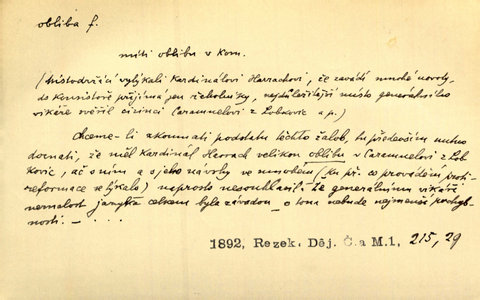 obliba f.
míti oblibu v kom.
(Místodržící vytýkali kardinálovi Harrachovi, že zavádí mnohé novoty,
do konsistoře přijímá jen řeholníky, nejdůležitější místo generálního
vikáře svěřil cizinci Caramuelovi z Lobkovic a p.)
Chceme-li zkoumati podstatu těchto žalob, tu především nutno
doznati, že měl kardinál Harrach velikou oblibu v Caramuelovi z Lob
kovic, ač s ním a s jeho návrhy ve mnohém (ku př. co provádění proti-
reformace se týkalo) naprosto nesouhlasil. Že generálnímu vikáři
neznalost jazyka českého byla závadou – o tom nebude nejmenší pochyb-
nosti. – . . . .
1892, Rezek. Děj. Č. a M. 1, 215, 29